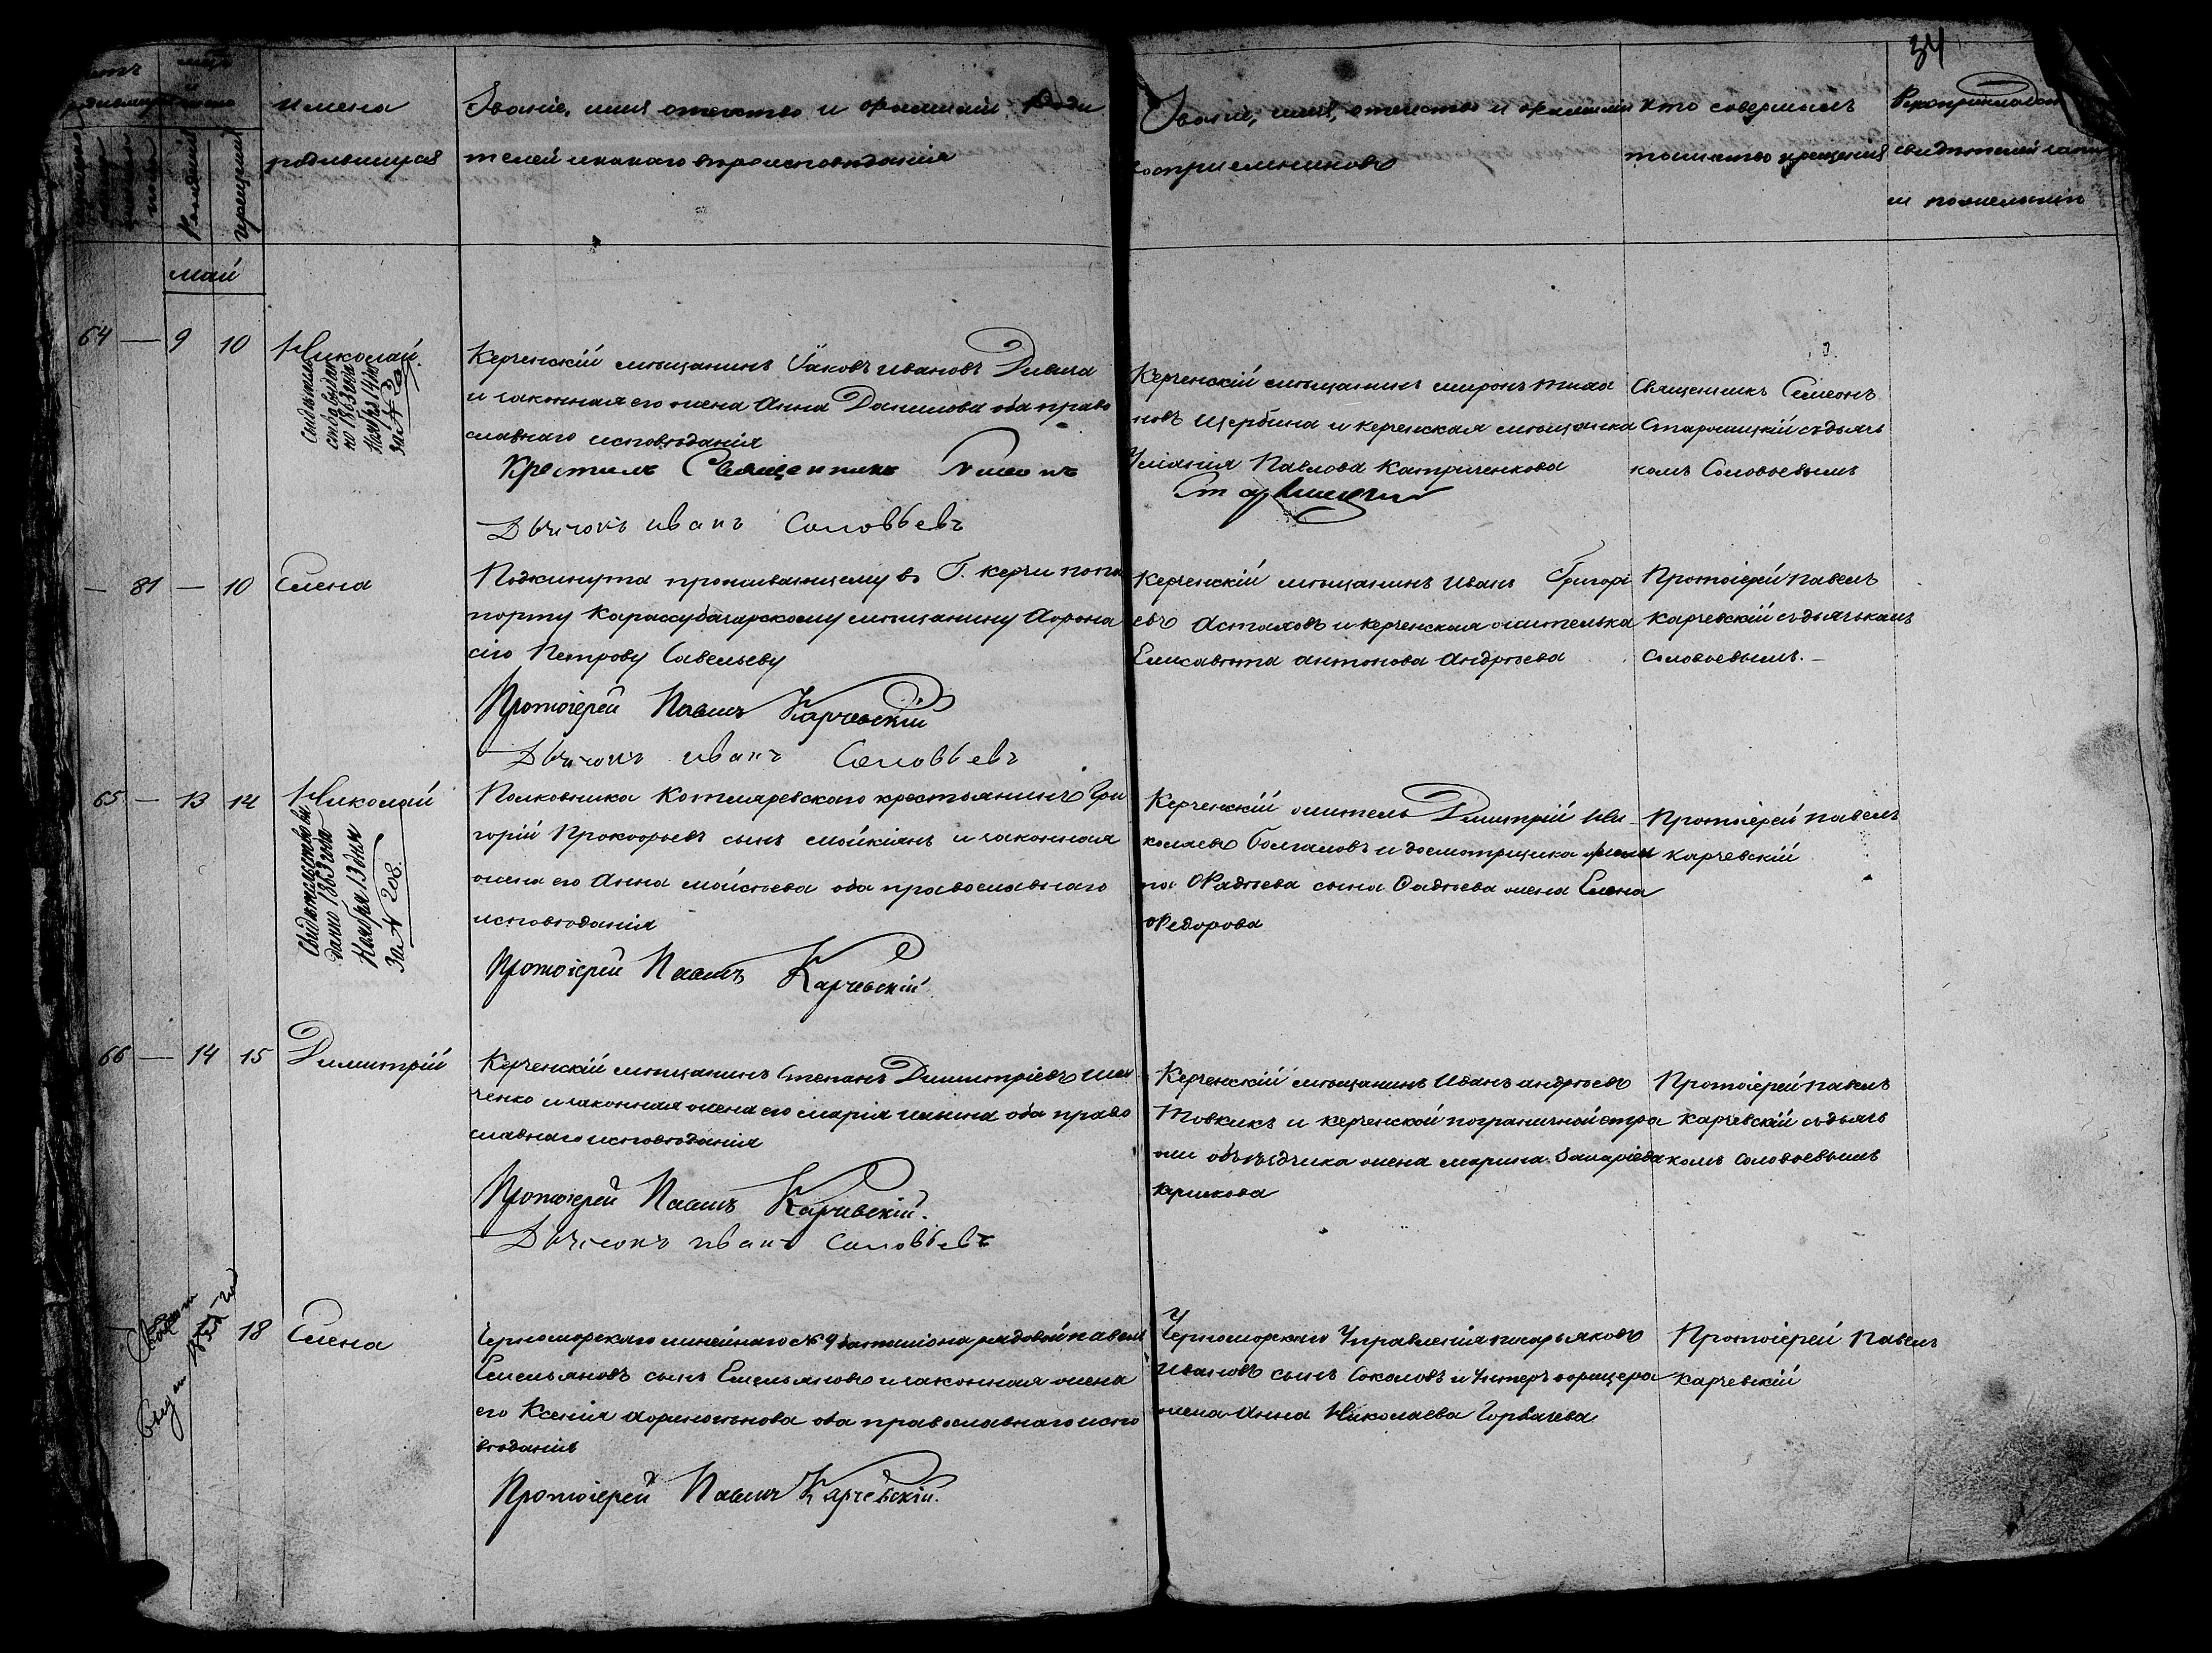 34
имена
родившихся
Званіе, имя отечество и фамиліи Роди
телей и какаго вѣроисповѣданія
Званіе, имя, отечество и фамилія
воспріемниковъ
Кто совершалъ
таинство крещенія
Рукоприкладст
свидѣтелей запи
си по желанію
рожденія
крещенія
май
64 — 9 10
Николай
Свидѣтельс
ство выдано
но 1863 года
Ноября 14 дня
За №
Керченскій мѣщанинъ Іаковъ Ивановъ
и законная его жена Анна Данилова оба право
славнаго исповѣданія
Крестилъ Священникъ Симеонъ
Дьячокъ иванъ Соловьевъ
Керченскій мѣщанинъ миронъ
новъ Щербина и керченская мѣщанка
Павлова
Священникъ Симеонъ
Старицкій съ дьяч
комъ Соловьевымъ
— 81 — 10
Елена
Подкинута проживающему въ Г. Керчи по па
порту Карассубазарскому мѣщанину Афона
сію Петрову Савельеву
Протоіерей Павелъ Карчевскій
Дьячокъ иванъ Соловьевъ
Керченскій мѣщанинъ Иванъ Григорі
евъ Астаховъ и керченская жителька
Елисавета антонова Андрѣева
Протоіерей павелъ
Карчевскій съ дьячькомъ
Соловьевымъ. —
65 — 13 14
Николай
Свидѣтельство вы
дано 1863 года
Ноября 13 дня
За № 208.
Полковника Котляревскаго крестьянинъ Гри
горій Прокофьевъ сынъ и законная
жена его Анна моисѣева оба православнаго
исповѣданія
Протоіерей Павелъ Карчевскій
Керченскій житель Димитрій Ни
колаевъ и досмотрщика
Фадѣева сына Фадѣева жена Елена
Федорова
Протоіерей павелъ
Карчевскій
66 — 14 15
Димитрій
Керченскій мѣщанинъ Степанъ Димитріевъ Шев
ченко и законная жена его марія ильина оба право
славнаго исповѣданія
Протоіерей Павелъ Карчевскій.
Дьячокъ иванъ Соловьевъ
Керченскій мѣщанинъ Иванъ андрѣевъ
Товкикъ и керченской пограничной стра
жи объѣздчика жена марина Захаріева
Протоіерей павелъ
Карчевскій съ дьяч
комъ Соловьевымъ
18
Елена
Черноморскаго линейнаго № 4 баталіона рядовой павелъ
Емельяновъ сынъ Емельяновъ и законная жена
его Ксенія оба православнаго испо
вѣданія
Протоіерей Павелъ Карчевскій.
Черноморскаго Управленія писарь яковъ
Ивановъ сынъ Соколовъ и Унтеръ офицера
жена Анна Николаева Горбачева
Протоіерей Павелъ
Карчевскій